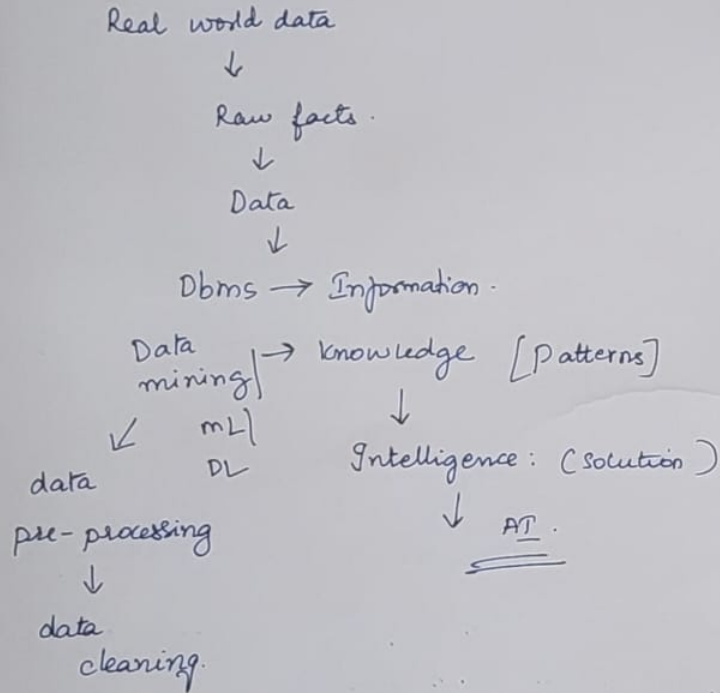 Real world data
↓
Raw facts.
↓
Data
↓
Dbms → Information.
Data mining/ → knowledge [Patterns]
mL/
DL
↓
Intelligence: (solution)
↓
AI.
↙
data
pre-processing
↓
data
cleaning.